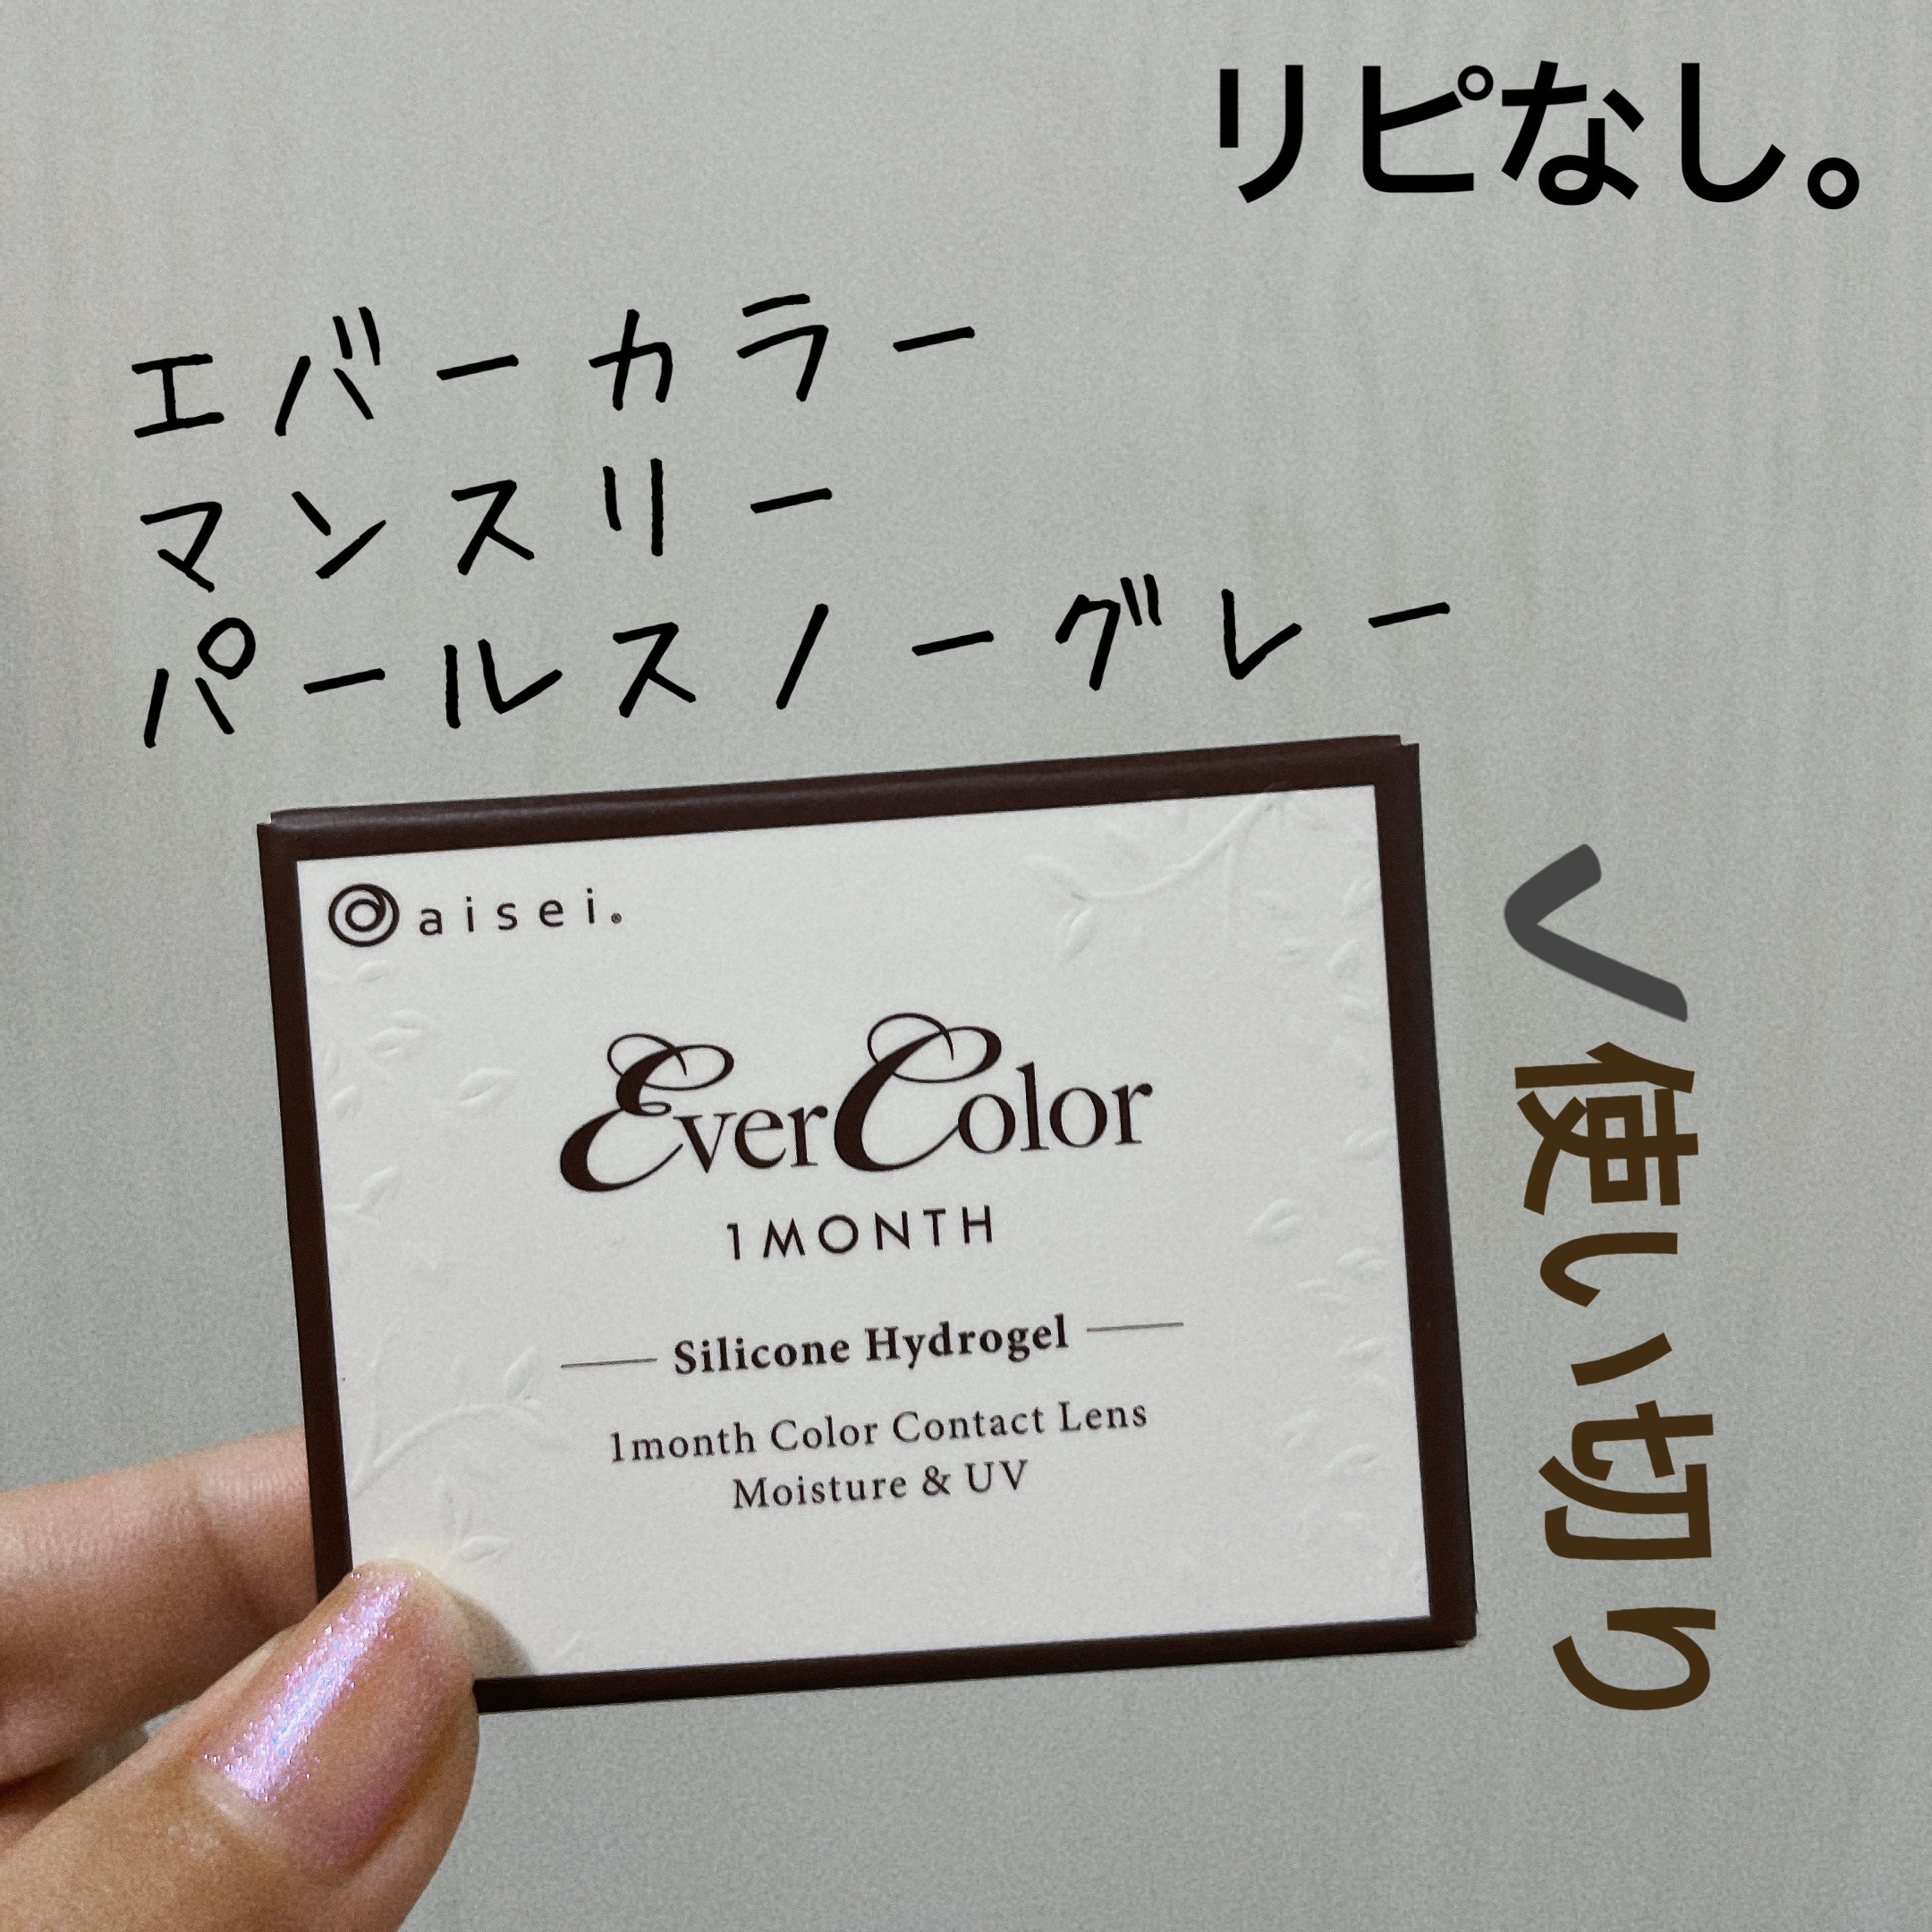 リピなし。
エバーカラー
マンスリー
パールスノーグレー
aisei.
EverColor
1MONTH
Silicone Hydrogel
1month Color Contact Lens
Moisture & UV
使い切り